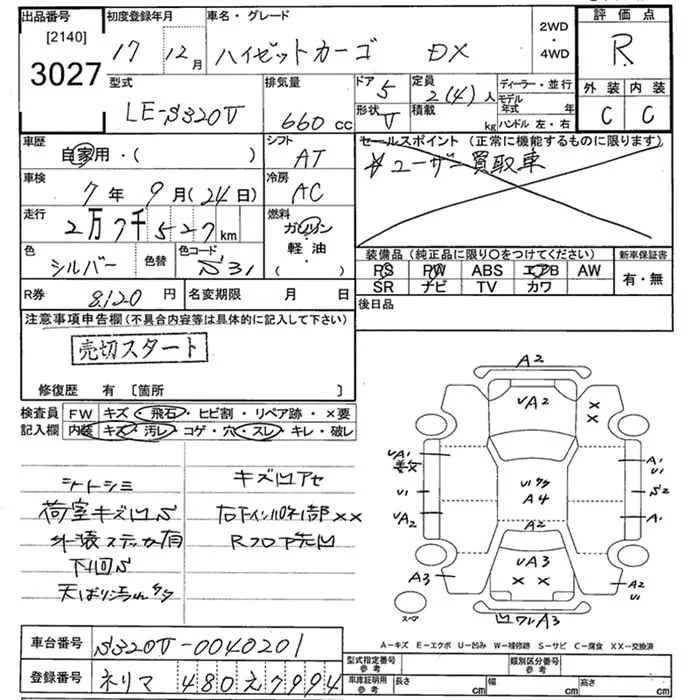 出品番号 初度登録年月 車名・グレード 2WD・4WD 評価点
[2140]
3027 17年 12月 ハイゼットカーゴ DX R
型式 排気量 ドア 5 定員 2(4)人 ディーラー・並行 外装 内装
LE-S320V 660cc 形状 V 積載 kg モデル年式 年 C C
ハンドル 左・右
車歴 自家用・( ) シフト AT セールスポイント (正常に機能するものに限ります)
☆ユーザー買取車
車検 7年 9月(24日) 冷房 AC
走行 2万7千527km 燃料 ガソリン
軽油
( )
色 シルバー 色替 色コード S31
装備品(純正品に限り○をつけてください) 新車保証書
PS PW ABS エアB AW 有・無
SR ナビ TV カワ
R券 8,120円 名変期限 月 日 後日品
注意事項申告欄(不具合内容等は具体的に記入して下さい)
売切スタート
修復歴 有 [箇所 ]
検査員 FW キズ・飛石・ヒビ割・リペア跡・×要
記入欄 内装 キズ・汚レ・コゲ・穴・スレ・キレ・破レ
シートシミ キズ凹アセ
荷室キズ凹S
外装ステッカー有 Rフロア先凹
下回S
A2
VA2
××
VA1 A1
U1
U1 A4 S2
VA2 A1
A2
VA3
A3 ×× A2
U1
スペア 凹ワレA3
A-キズ E-エクボ U-凹み W-補修跡 S-サビ C-腐食 XX-交換済
車台番号 S320V-0040201
型式指定番号 参考 類別区分番号 参考
登録番号 ネリマ 480 え 7994
車庫証明用 参考 長さ cm 幅 cm 高さ cm